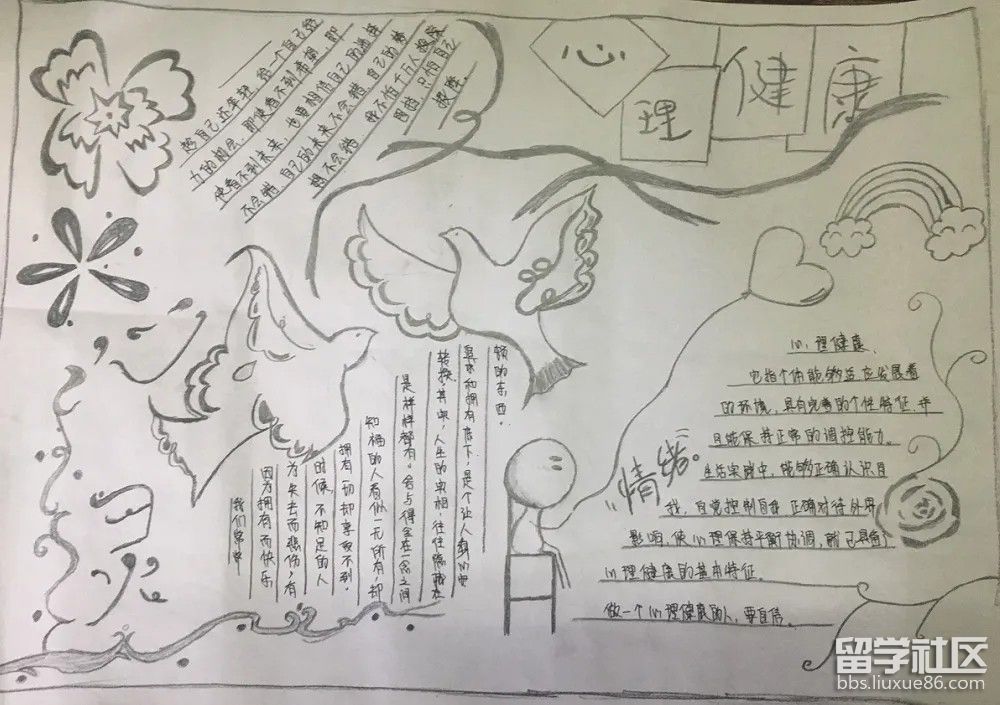 心理健康
趁自己还年轻，给一个自己努
力的机会，即使看不到希望，即
使看不到未来，也要相信自己的选择
不会错，自己的未来不会错，自己的梦
想不会错
我不怕千万人阻挡
只怕自己
投降。
我们常常
因为拥有而快乐
为失去而悲伤，有
时候，不知足的人
拥有一切却享受不到。
知福的人看似一无所有，却
是样样都有。舍与得全在一念之间
转换，其中，人生的实相，往往隐藏在
具求和拥有底下，是个让人
顿的东西。
"情绪"
心理健康，
它指个体能够适应发展着
的环境，具有完善的个性特征，并
且能保持正常的调控能力。
生活实践中，能够正确认识自
我，自觉控制自我，正确对待外界
影响，使心理保持平衡协调，就已具备了
心理健康的基本特征。
做一个心理健康的人，要自信。
留学社区
bbs.liuxue86.com